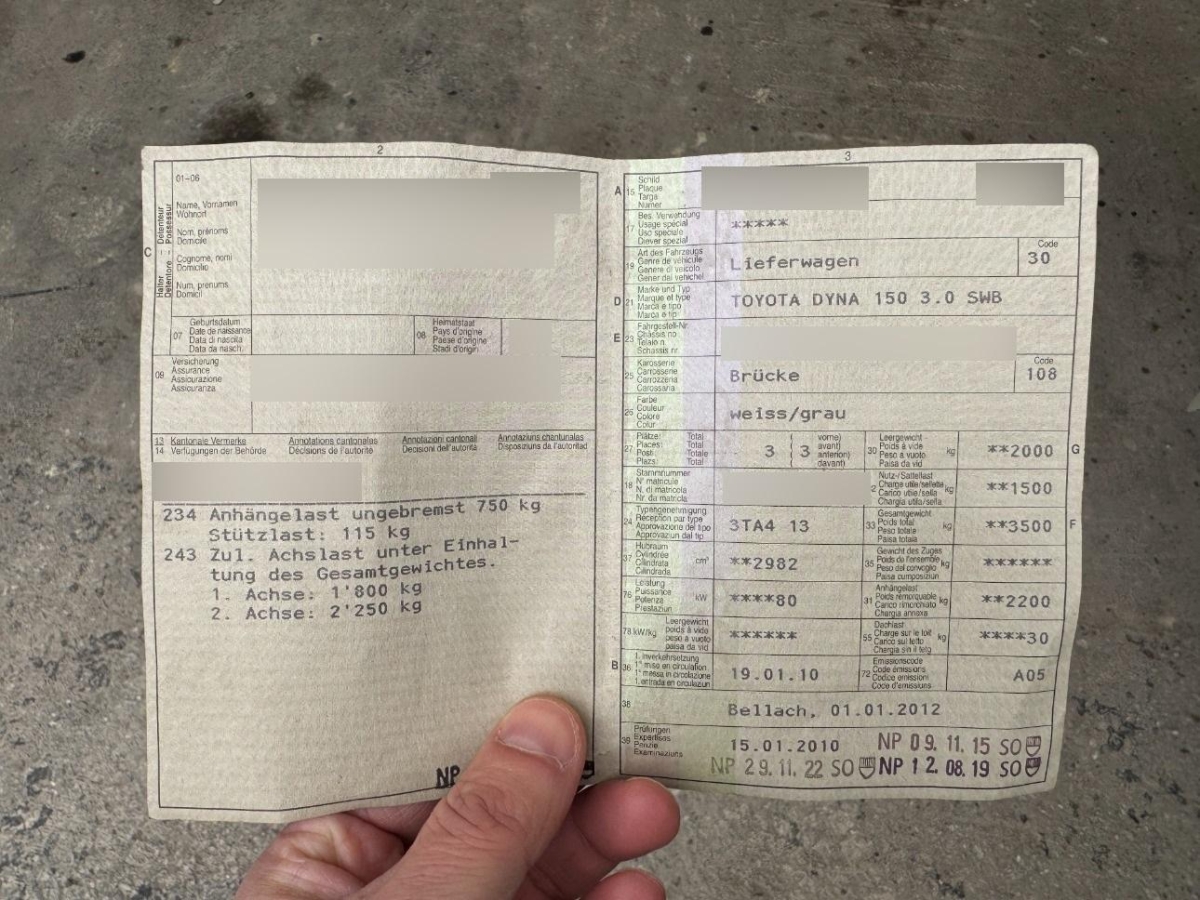 2
01-06
Detenteur
Possessur
Halter
Detentore
C
Name, Vornamen
Wohnort
Nom, prénoms
Domicile
Cognome, nomi
Domicilio
Num, prenums
Domicil
07
Geburtsdatum
Date de naissance
Data di nascita
Data da nasch.
08
Heimatstaat
Pays d'origine
Paese d'origine
Stadi d'origin
09
Versicherung
Assurance
Assicurazione
Assicuranza
13 Kantonale Vermerke Annotations cantonales Annotazioni cantonali Annotaziuns chantunalas
14 Verfügungen der Behörde Décisions de l'autorité Decisioni dell'autorità Disposiziuns da l'autoritad
234 Anhängelast ungebremst 750 kg
Stützlast: 115 kg
243 Zul. Achslast unter Einhal-
tung des Gesamtgewichtes.
1. Achse: 1'800 kg
2. Achse: 2'250 kg
NP
3
A 15
Schild
Plaque
Targa
Numer
17
Bes. Verwendung
Usage spécial
Uso speciale
Diever spezial
*****
19
Art des Fahrzeugs
Genre de véhicule
Genere di veicolo
Gener dal vehichel
Lieferwagen
Code
30
D 21
Marke und Typ
Marque et type
Marca e tipo
Marca e tip
TOYOTA DYNA 150 3.0 SWB
E 23
Fahrgestell-Nr.
Châssis no
Telaio n.
Schassis nr.
25
Karosserie
Carrosserie
Carrozzeria
Carossaria
Brücke
Code
108
26
Farbe
Couleur
Colore
Colur
weiss/grau
27
Plätze: Total
Places: Total
Posti: Totale
Plazs: Total
3 ( 3 vorne)
avant)
anteriori)
davant)
30
Leergewicht
Poids à vide
Peso a vuoto
Paisa da vid
kg
**2000
G
18
Stammnummer
N° matricule
N. di matricola
Nr. da matricla
Nutz-/Sattellast
Charge utile/sellette
Carico utile/sella
Chargia utila/sella
kg
**1500
24
Typengenehmigung
Réception par type
Approvazione del tipo
Approvaziun dal tip
3TA4 13
33
Gesamtgewicht
Poids total
Peso totale
Paisa totala
kg
**3500
F
37
Hubraum
Cylindrée
Cilindrata
Cilindrada
cm³
**2982
35
Gewicht des Zuges
Poids de l'ensemble
Peso del convoglio
Paisa cumposiziun
kg
******
76
Leistung
Puissance
Potenza
Prestaziun
kW
****80
31
Anhängelast
Poids remorquable
Carico rimorchiato
Chargia annexa
kg
**2200
78 kW/kg
Leergewicht
poids à vide
peso a vuoto
paisa da vid
******
55
Dachlast
Charge sur le toit
Carico sul tetto
Chargia sin il tetg
kg
****30
B 36
1. Inverkehrsetzung
1re mise en circulation
1a messa in circolazione
1. entrada en circulaziun
19.01.10
72
Emissionscode
Code émissions
Codice emissioni
Code d'emissiuns
A05
38
Bellach, 01.01.2012
39
Prüfungen
Expertises
Perizie
Examinaziuns
15.01.2010 NP 09. 11. 15 SO
NP 29. 11. 22 SO NP 12. 08. 19 SO